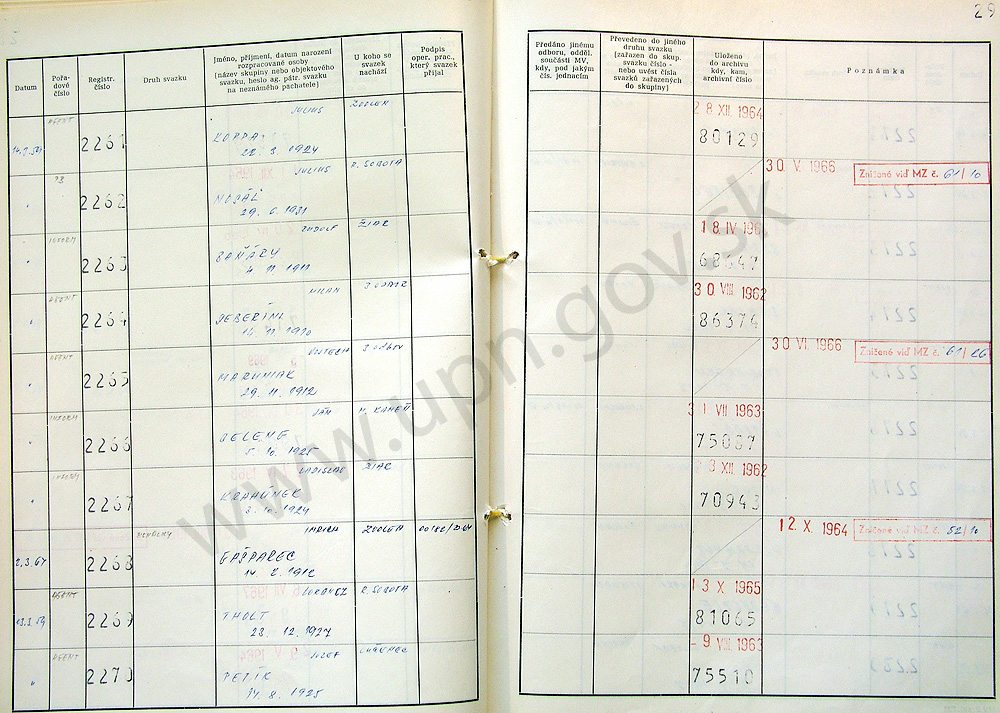 29
Datum
Pořadové číslo
Registr. číslo
Druh svazku
Jméno, příjmení, datum narození
rozpracované osoby
(název skupiny nebo objektového
svazku, heslo ag. pátr. svazku
na neznámého pachatele)
U koho se
svazek
nachází
Podpis
oper. prac.,
který svazek
přijal
Předáno jinému
odboru, odděl.
součásti MV,
kdy, pod jakým
čís. jednacím
Převedeno do jiného
druhu svazku
(zařazen do skup.
svazku číslo -
nebo uvést čísla
svazků zařazených
do skupiny)
Uloženo
do archivu
kdy, kam,
archivní číslo
Poznámka
AGENT JULIUS ZVOLEN 28 XII. 1964
2261 KOPPA 80129
22. 3. 1924
JULIUS R. SOBOTA 30 V. 1966 Znížené viď MZ č. 61/10
2262 NOSÁĽ
29. 6. 1931
INFORM RUDOLF ŽIAR 18 IV 196
2263
4. 11. 1911
AGENT MILAN 30 VIII 1962
2264 86374
AGENT VOJTECH 30 VI. 1966 Znížené viď MZ č. 61/26
2265 MARUNIAK
29. 11. 1912
INFORM JÁN 31 VII 1963
2266 75037
5. 10. 1925
INFORM LADISLAV ŽIAR 3 XII 1962
2267 70943
8. 10. 1924
IMRICH ZVOLEN 12 X. 1964 Znížené viď MZ č. 52/10
2268 GAŠPAREC
AGENT R. SOBOTA 13 X 1965
2269 THOLT 81065
23. 12. 1927
AGENT JOZEF LUČENEC - 9 VIII 1963
2270 PETÍK 75510
14. 8. 1925
www.upn.gov.sk